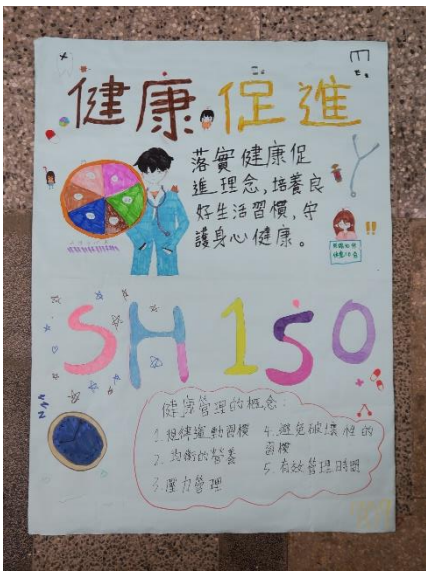 健康促進
落實健康促
進理念,培養良
好生活習慣,守
護身心健康。
SH150
健康管理的概念:
1.規律運動習慣
2.均衡的營養
3.壓力管理
4.避免破壞性的
習慣
5.有效管理時間